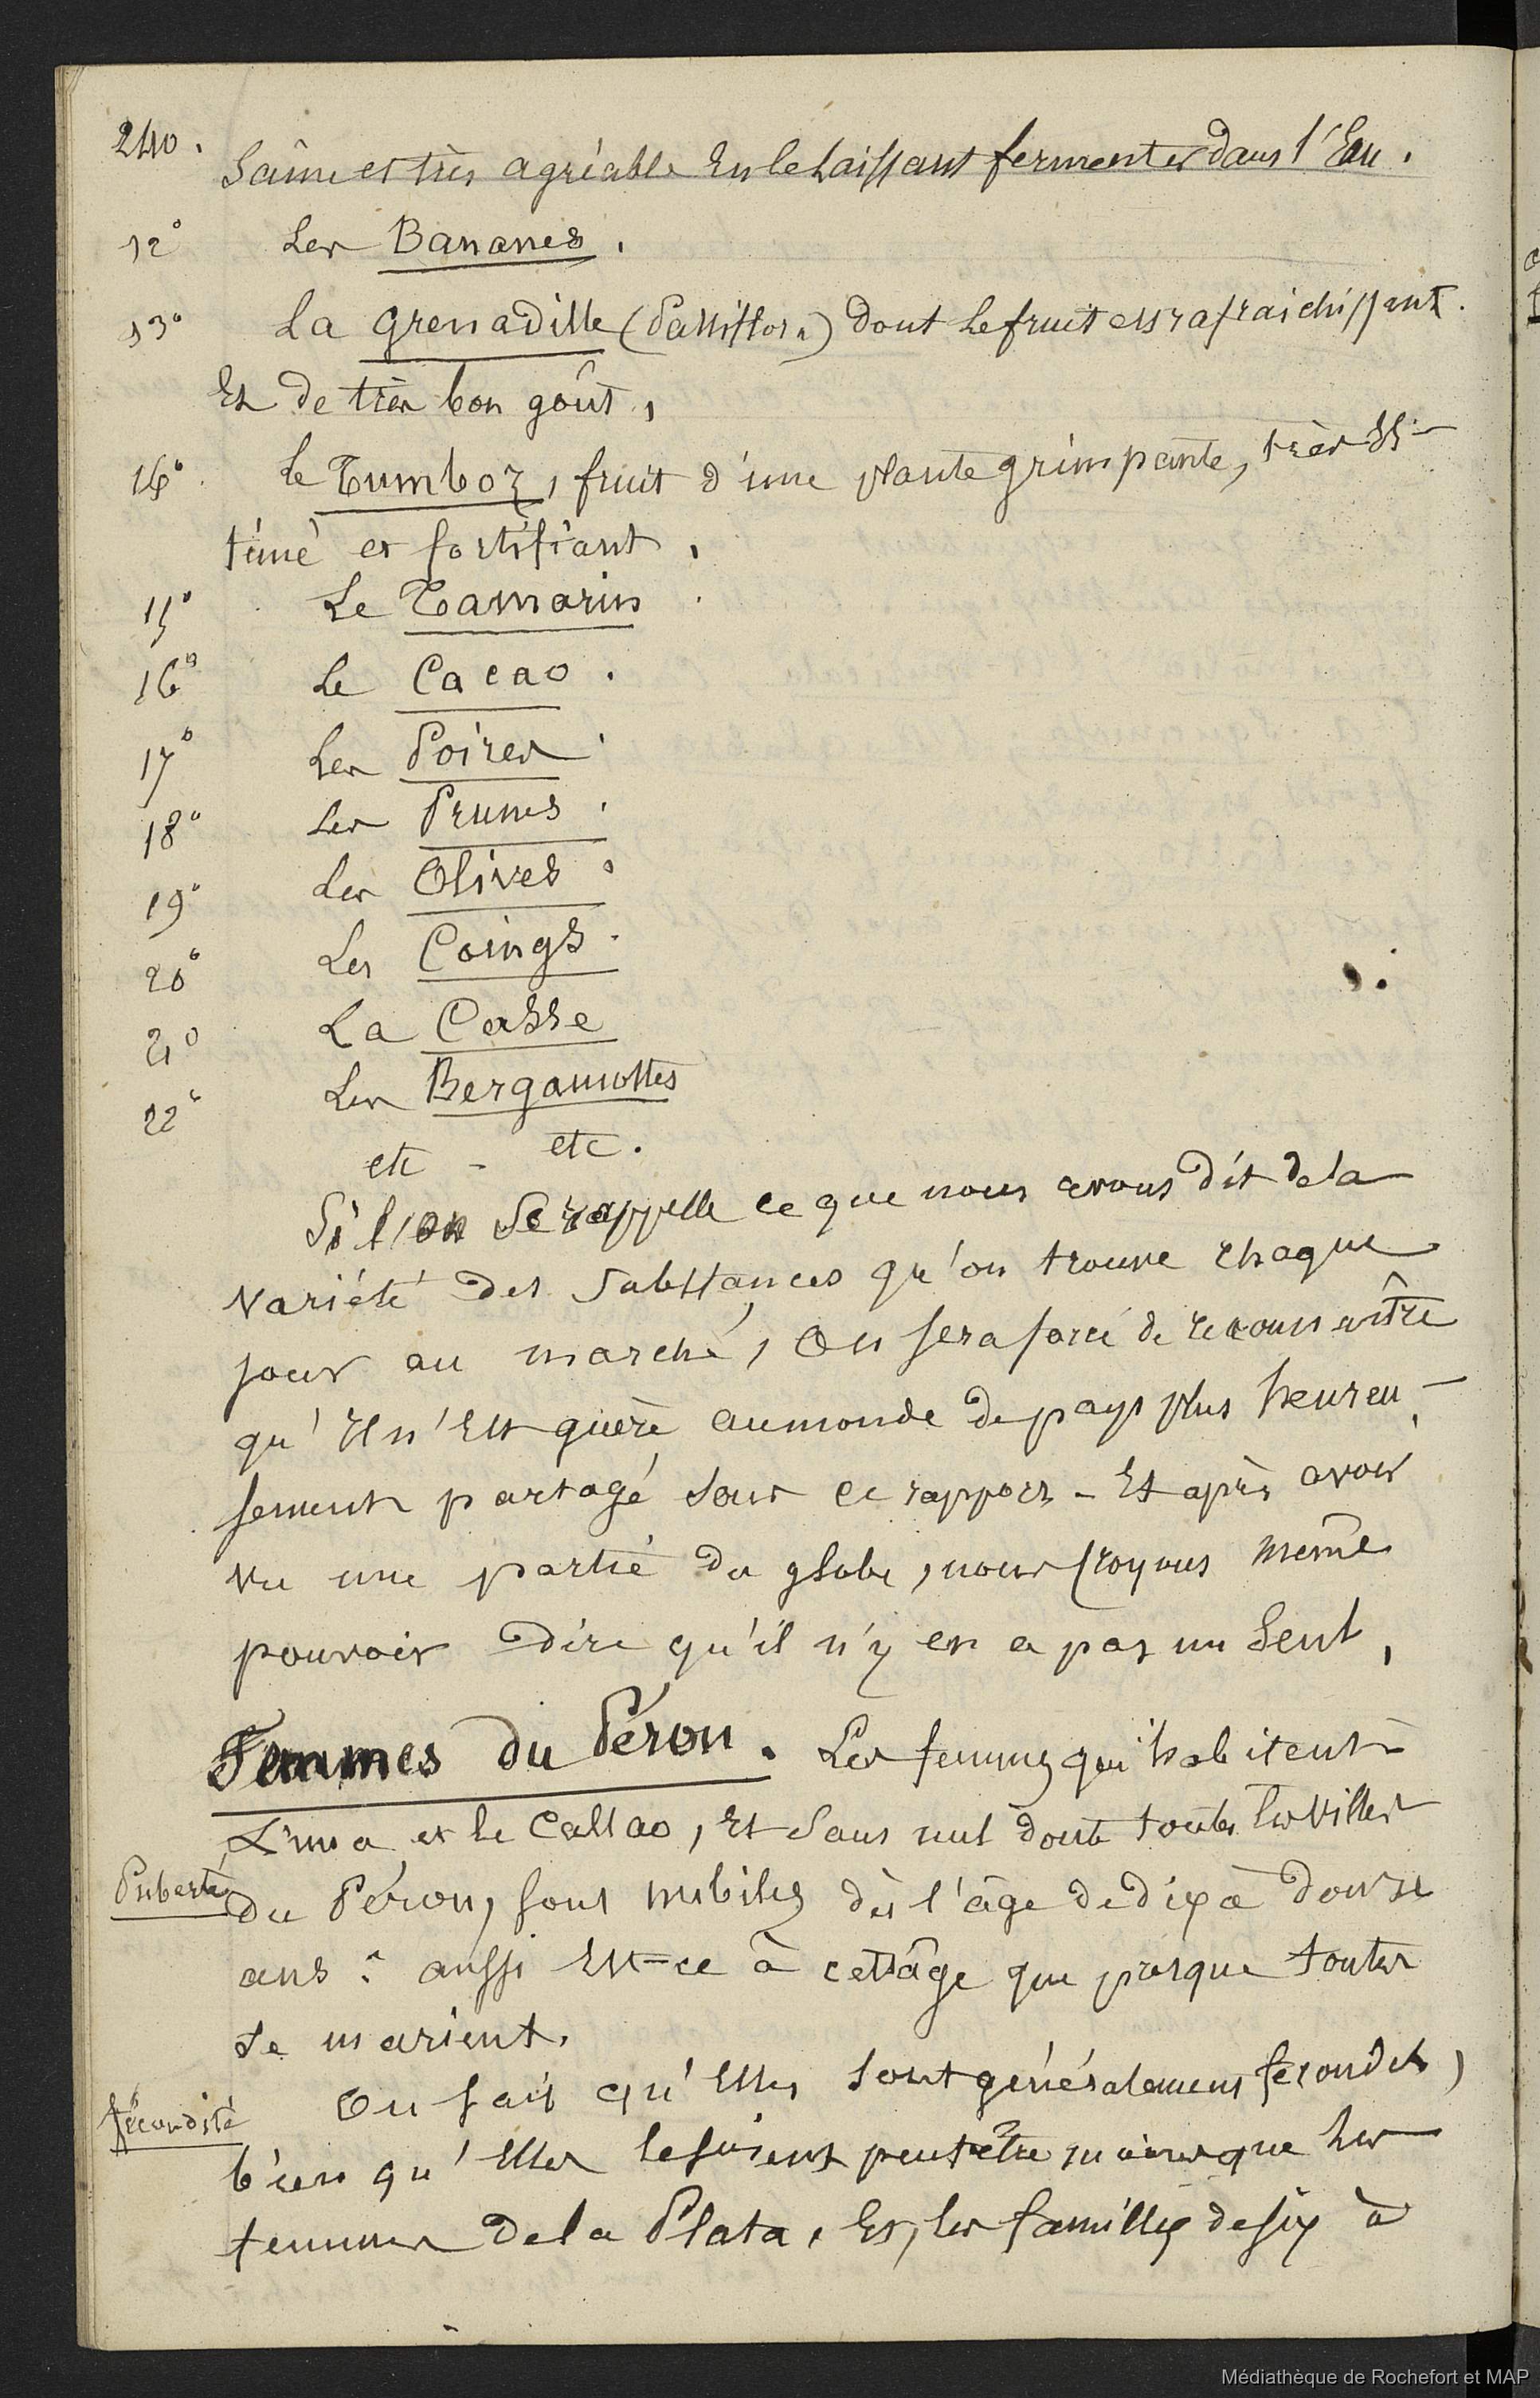 240.
Saine et très agréable En le Laissant fermenter dans l'Eau.
12° Les Bananes.
13° La grenadille (Passiflora) dont Le fruit est rafraichissant
Et de très bon goût,
14° Le Tumboz, fruit d'une plante grimpante, très Es-
timé et fortifiant.
15° Le Tamarin
16° Le Cacao.
17° Les Poires.
18° Les Prunes.
19° Les Olives.
20° Les Coings.
21° La Casse
22° Les Bergamottes
etc - etc.
Si l'on Se rappelle ce que nous avons dit de la
Variété des Substances qu'on trouve chaque
jour au marché, On sera forcé de reconnaître
qu'Il n'Est guère au monde de pays plus heureu-
sement partagé sous ce rapport - Et après avoir
vu une partie du globe, nous croyons même
pouvoir dire qu'il n'y en a pas un Seul,
Femmes du Pérou. Les femmes qui habitent
Lima et le Callao, Et Sans nul doute toutes les Villes
Puberté
du Pérou, sont nubiles dès l'âge de dix à douze
ans : aussi Est-ce à cet âge que presque toutes
Se marient.
fécondité
On sait qu'Elles sont généralement fécondes,
bien qu'Elles le soient peut être moins que les
femmes de la Plata. Et, les familles de six à
Médiathèque de Rochefort et MAP